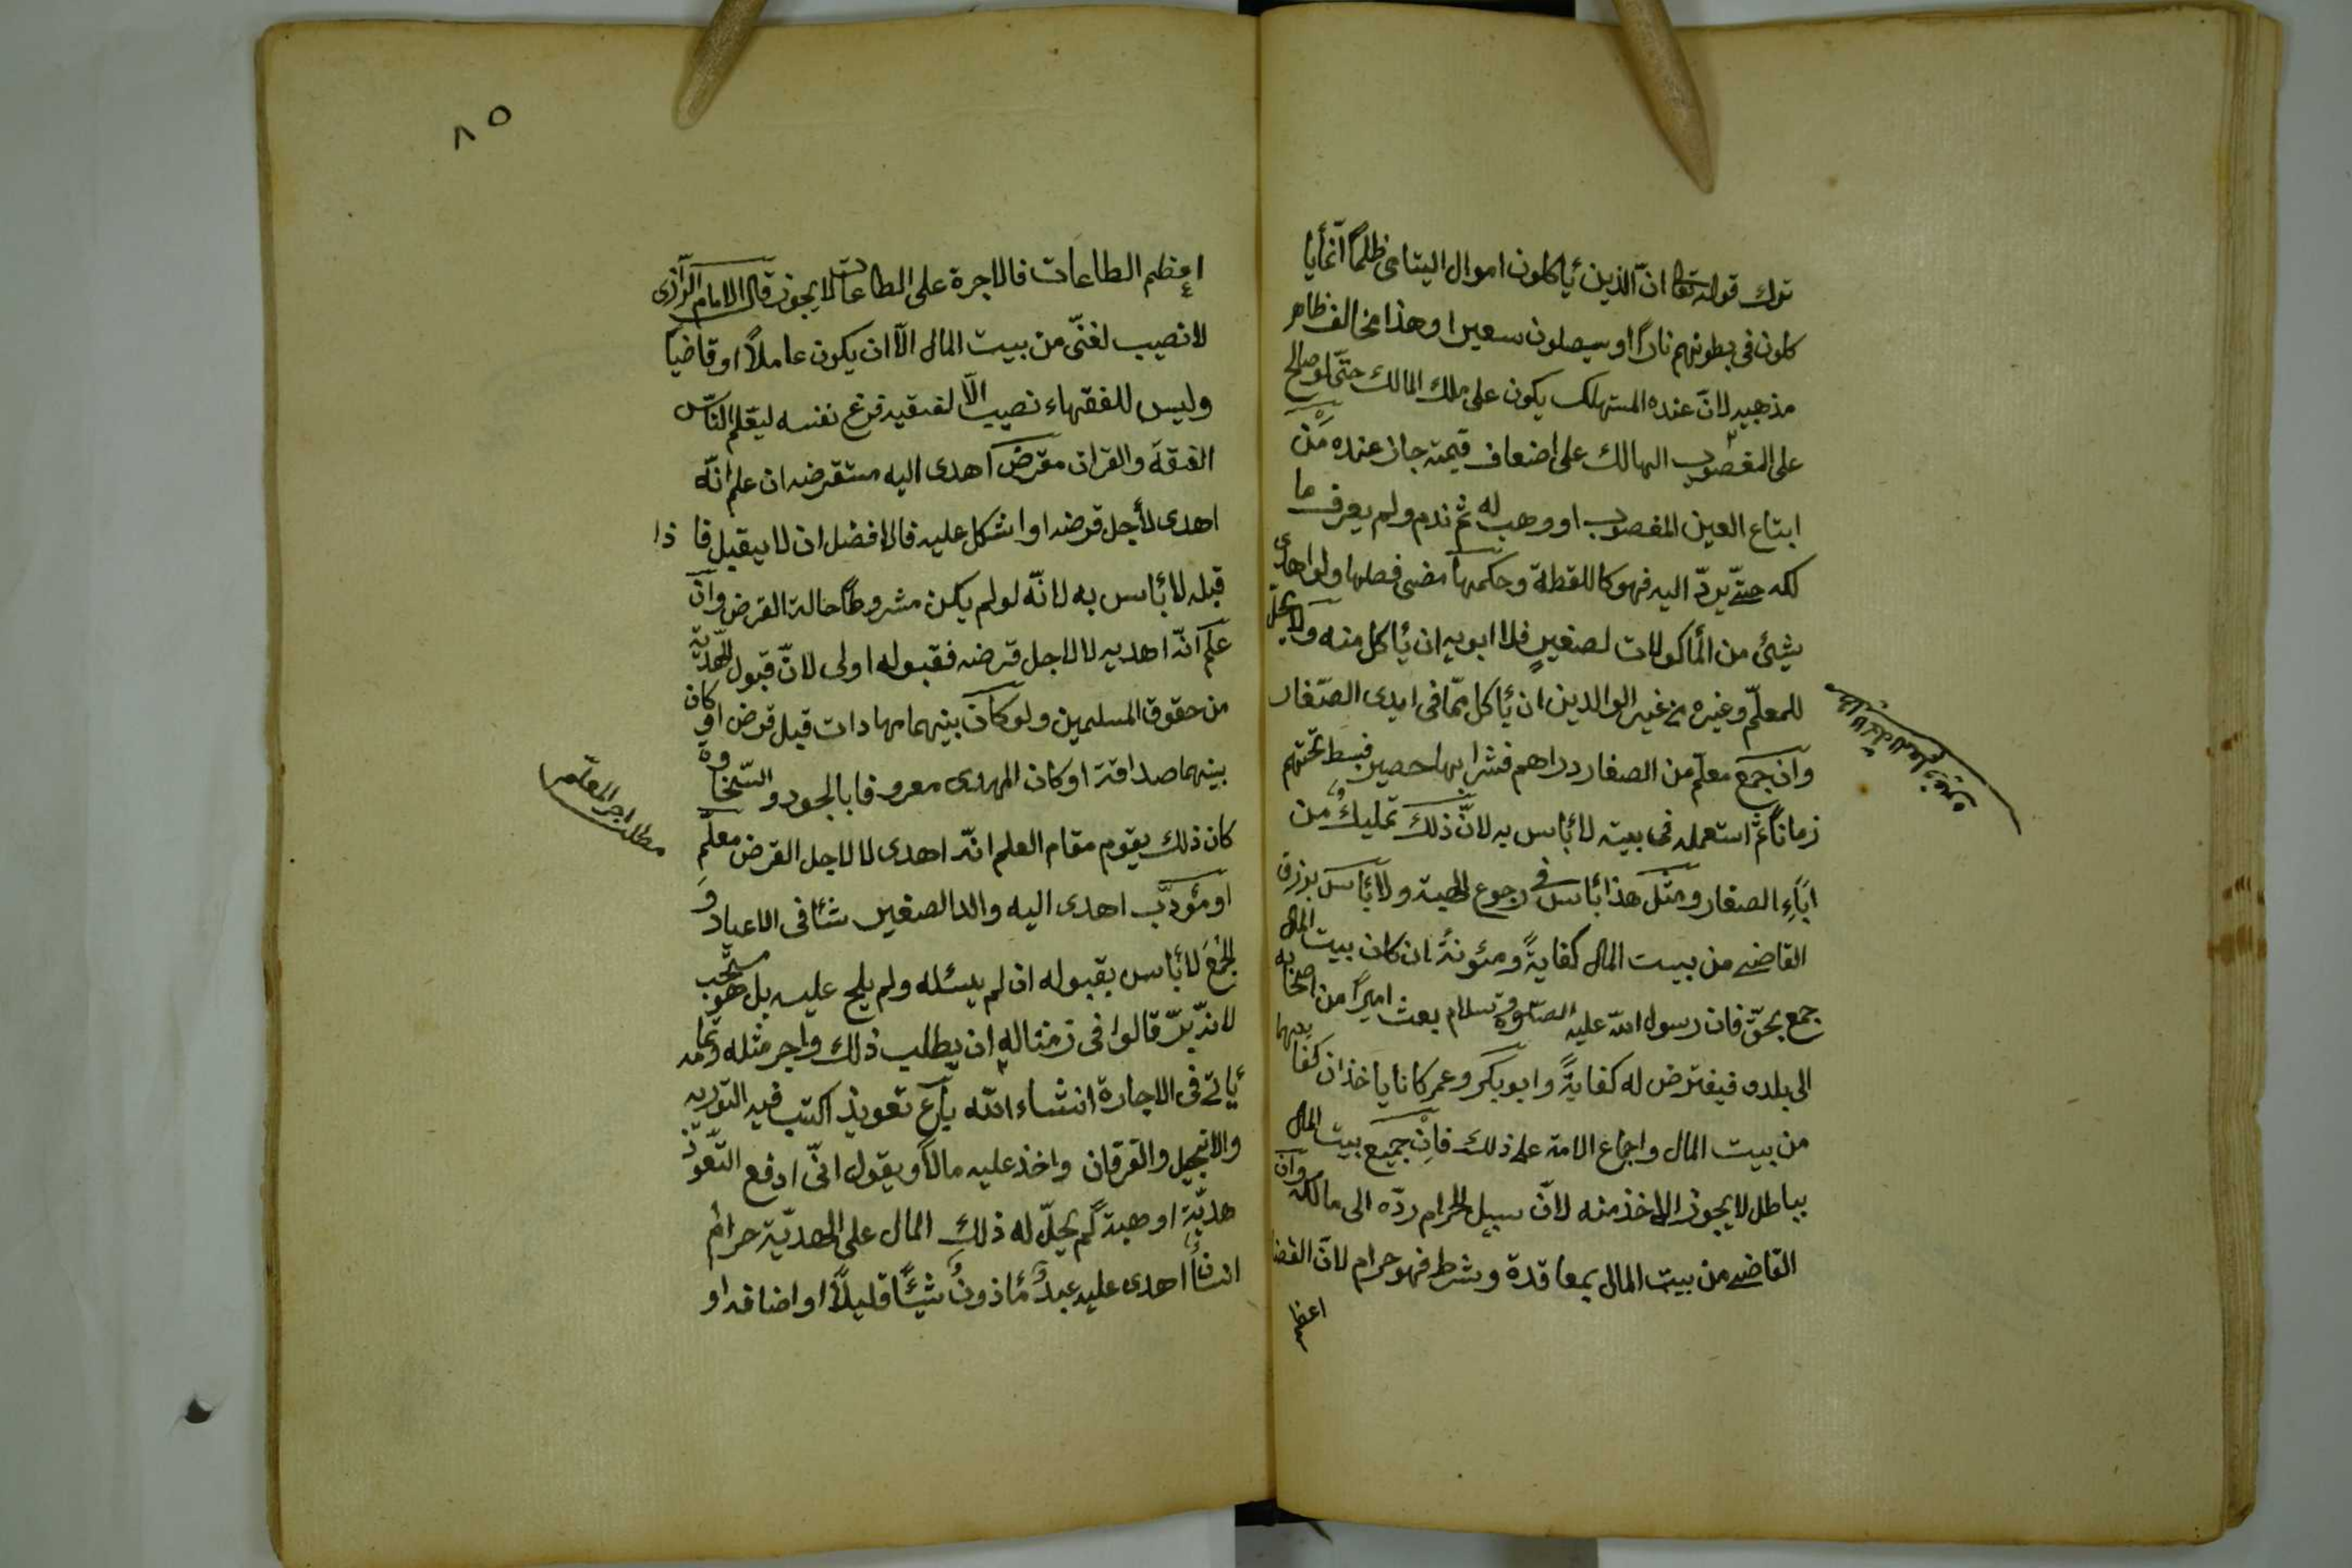 توك قوله تعا انّ الذين يأكلون اموال اليتامى ظلمًا انّما يأ
كلون فى بطونهم نارًا وسيصلون سعيرا وهذا مخالف ظاهر
مذهبه لانّ عنده المستهلك يكون على ملك المالك حتّى لو صالح
على المغصوب الهالك على اضعاف قيمته جاز عنده مَن
ابتاع العين المغصوب او وهب له ثمّ ندم ولم يعرف ما
لكه حتّى يردّ اليه فهو كاللقطة وحكمها مضى فصلها ولو اهدى
شيئ من المأكولات لصغيرٍ فلا ابويه ان يأكل منه ولا يحلّ
للمعلّم وغيره من غير الوالدين ان يأكل ممّا فى ايدى الصّغار
وان جمع معلّم من الصغار دراهم فشرا بها حصير فبسط تحتهم
زمانًا ثمّ استعمله فى بيته لا بأس به لانّ ذلك تمليكٌ من
اباءِ الصغار ومثل هذا بأس فى رجوع الهبة ولا بأس برزق
القاضى من بيت المال كفايةً ومئونةً ان كان بيت المال
جمع بحقّ فان رسول الله عليه الصّلوة وسلام بعث اميرًا من اصحابه
الى بلده فيفترض له كفايةً وابو بكر وعمر كانا ياخذان كفايتهما
من بيت المال واجماع الامة على ذلك فاِنْ جميع بيت المال
بباطل لا يجوز الاخذ منه لانّ سبيل الحرام ردّه الى مالكه وان
القاضى من بيت المال بمعاقدة وشرط فهو حرام لانّ القضا
اعظم
٨٥
اعظم الطاعات فالاجرة على الطاعات لا يجوز قال الامام الرّازى
لا نصيب لغنىّ من بيت المال الّا ان يكون عاملًا او قاضيا
وليس للفقهاء نصيب الّا لفقيه فرغ نفسه ليعّلم النّاس
الفقه والقران مقرض اهدى اليه مستقرضه ان علم انّه
اهدى لأجل قرضه او اشكل عليه فالافضل ان لا يقبل فا ذا
قبله لا بأس به لانّه لو لم يكن مشروطًا حالة القرض وان
علم انّه اهديه لا لاجل قرضه فقبوله اولى لانّ قبول الهديّة
من حقوق المسلمين ولو كان بينهما مهادات قبل قرض او كان
بينهما صداقة او كان المهدى معروفا بالجود والسّخاوة
كان ذلك يقوم مقام العلم انّه اهدى لا لاجل القرض معلّم
او مؤدّب اهدى اليه والد الصغير شئا فى الاعياد وَ
الجُمَع لا بأس بقبوله ان لم يسئله ولم يلح عليه بل هو مستحّب
لانّه برّ قالوا فى زمننا له ان يطلب ذلك واجر مثله وتمامه
يأتى فى الاجارة انشاء الله باع تعويذ اكتب فيه التورية
والانجيل والفرقان واخذ عليه مالًا ويقول انّى ادفع التّعويذ
هديّة او هبة لم يحلّ له ذلك المال على الهديّة حرام
انسانًا اهدى عليه عبدٌ مأذونٌ شيئًا قليلًا او اضافه او
مطلب اجر المعلّم